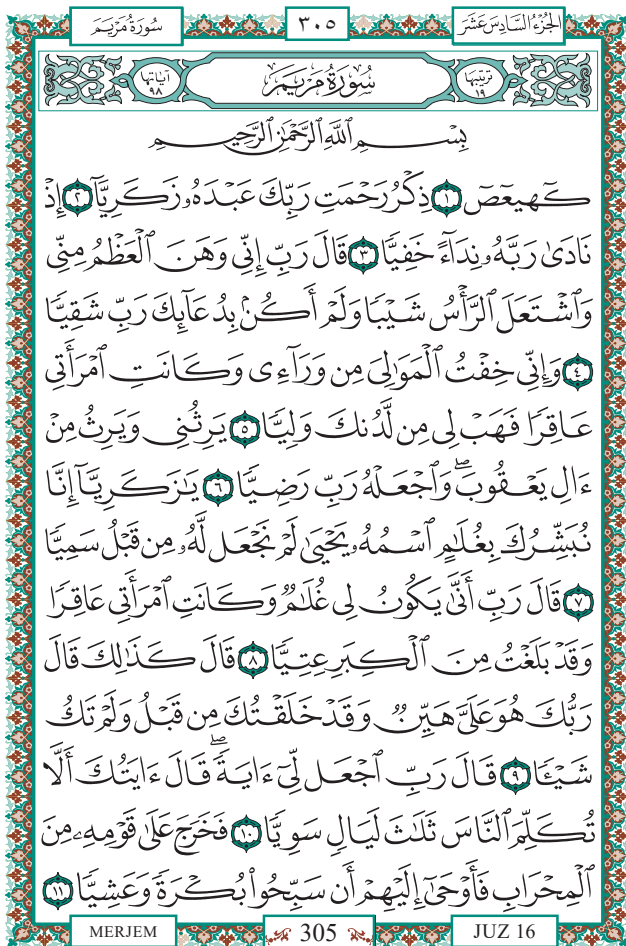 الجُزْءُ السَّادِسَ عَشَرَ ٣٠٥ سُورَةُ مَرْيَم
تَرْتِيبُهَا ١٩ سُورَةُ مَرْيَمَ آيَاتُهَا ٩٨
بِسْمِ ٱللَّهِ ٱلرَّحْمَٰنِ ٱلرَّحِيمِ
كٓهيعٓصٓ ١ ذِكْرُ رَحْمَتِ رَبِّكَ عَبْدَهُۥ زَكَرِيَّآ ٢ إِذْ
نَادَىٰ رَبَّهُۥ نِدَآءً خَفِيًّا ٣ قَالَ رَبِّ إِنِّى وَهَنَ ٱلْعَظْمُ مِنِّى
وَٱشْتَعَلَ ٱلرَّأْسُ شَيْبًا وَلَمْ أَكُنۢ بِدُعَآئِكَ رَبِّ شَقِيًّا
٤ وَإِنِّى خِفْتُ ٱلْمَوَٰلِىَ مِن وَرَآءِى وَكَانَتِ ٱمْرَأَتِى
عَاقِرًا فَهَبْ لِى مِن لَّدُنكَ وَلِيًّا ٥ يَرِثُنِى وَيَرِثُ مِنْ
ءَالِ يَعْقُوبَ ۖ وَٱجْعَلْهُ رَبِّ رَضِيًّا ٦ يَٰزَكَرِيَّآ إِنَّا
نُبَشِّرُكَ بِغُلَٰمٍ ٱسْمُهُۥ يَحْيَىٰ لَمْ نَجْعَل لَّهُۥ مِن قَبْلُ سَمِيًّا
٧ قَالَ رَبِّ أَنَّىٰ يَكُونُ لِى غُلَٰمٌ وَكَانَتِ ٱمْرَأَتِى عَاقِرًا
وَقَدْ بَلَغْتُ مِنَ ٱلْكِبَرِ عِتِيًّا ٨ قَالَ كَذَٰلِكَ قَالَ
رَبُّكَ هُوَ عَلَىَّ هَيِّنٌ وَقَدْ خَلَقْتُكَ مِن قَبْلُ وَلَمْ تَكُ
شَيْـًٔا ٩ قَالَ رَبِّ ٱجْعَل لِّىٓ ءَايَةً ۚ قَالَ ءَايَتُكَ أَلَّا
تُكَلِّمَ ٱلنَّاسَ ثَلَٰثَ لَيَالٍ سَوِيًّا ١٠ فَخَرَجَ عَلَىٰ قَوْمِهِۦ مِنَ
ٱلْمِحْرَابِ فَأَوْحَىٰٓ إِلَيْهِمْ أَن سَبِّحُوا۟ بُكْرَةً وَعَشِيًّا ١١
MERJEM 305 JUZ 16